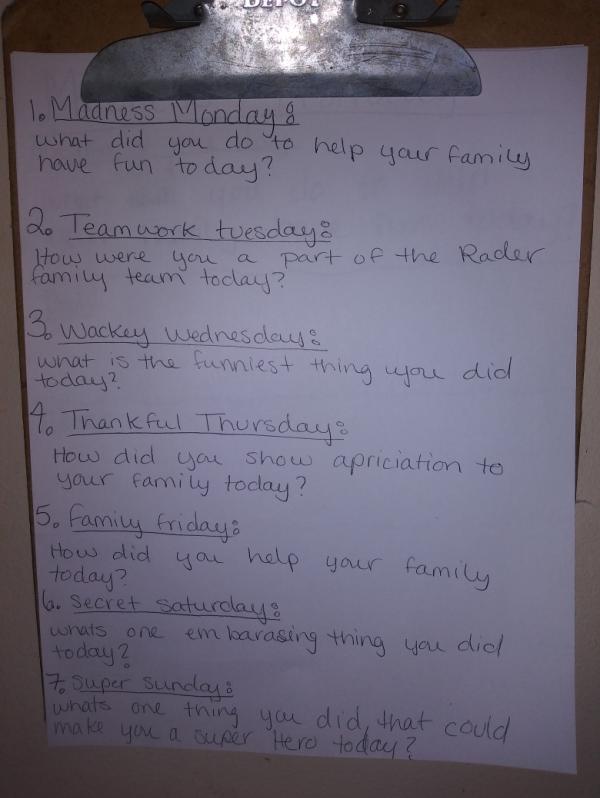 DEPOT
1. Madness Monday:
what did you do to help your family
have fun today?
2. Teamwork tuesday:
How were you a part of the Rader
family team today?
3. Wackey Wednesday:
what is the funniest thing you did
today?
4. Thankful Thursday:
How did you show apriciation to
your family today?
5. Family friday:
How did you help your family
today?
6. Secret Saturday:
whats one embarasing thing you did
today?
7. Super Sunday:
whats one thing you did, that could
make you a super Hero today?